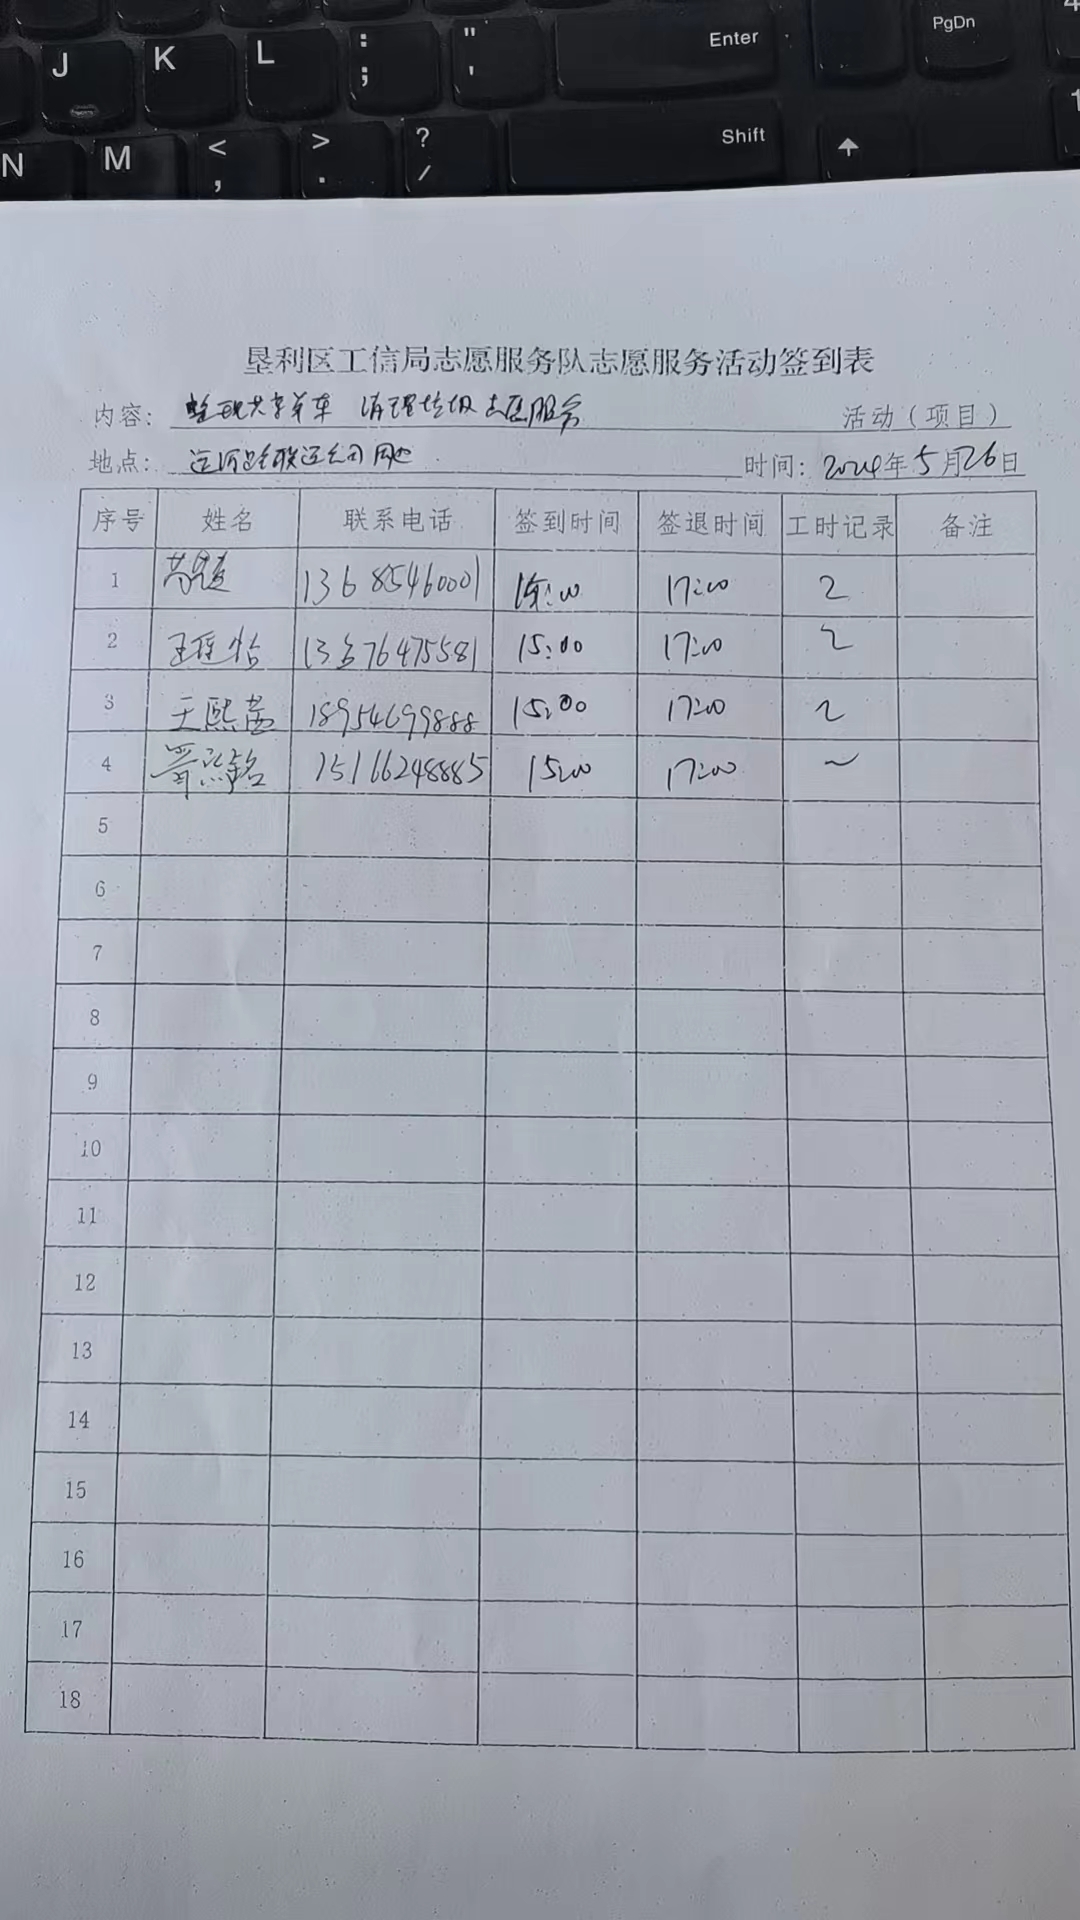 J K L : ; " ' Enter PgDn
N M < , > . ? / Shift
垦利区工信局志愿服务队志愿服务活动签到表
内容: 整理共享单车 清理垃圾志愿服务 活动（项目）
地点: 运河路联运公司周边 时间: 2024年5月26日
序号 姓名 联系电话 签到时间 签退时间 工时记录 备注
1 13685460001 15:00 17:00 2
2 15:00 17:00 2
3 王熙 18954699888 15:00 17:00 2
4 15166248885 15:00 17:00
5
6
7
8
9
10
11
12
13
14
15
16
17
18